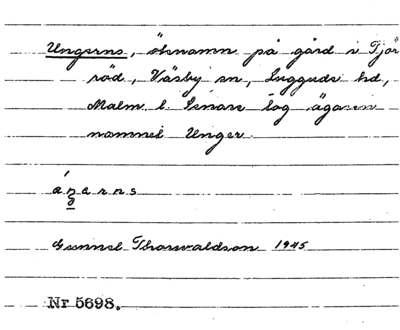 Ungerns, öknamn på gård i Tjör
röd, Väsby sn, Luggude hd,
Malm. l. Senare tog ägaren
namnet Unger.
Gunnel Thorwaldson 1945
Nr 5698.